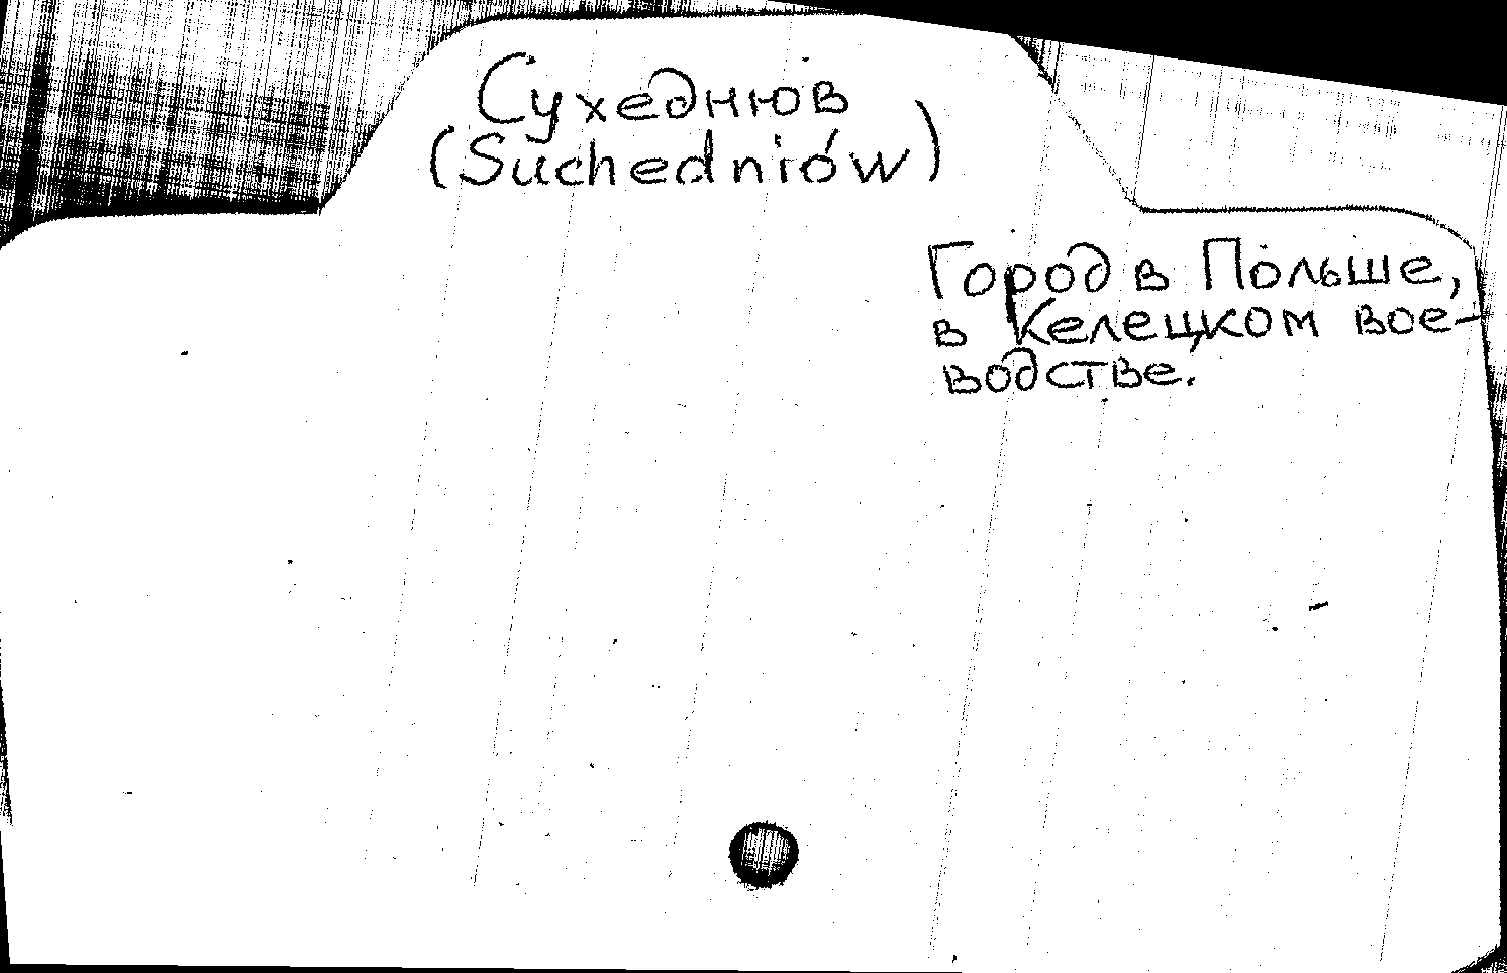 Сухеднюв
(Suchedniów)
Город в Польше,
в Келецком вое-
водстве.